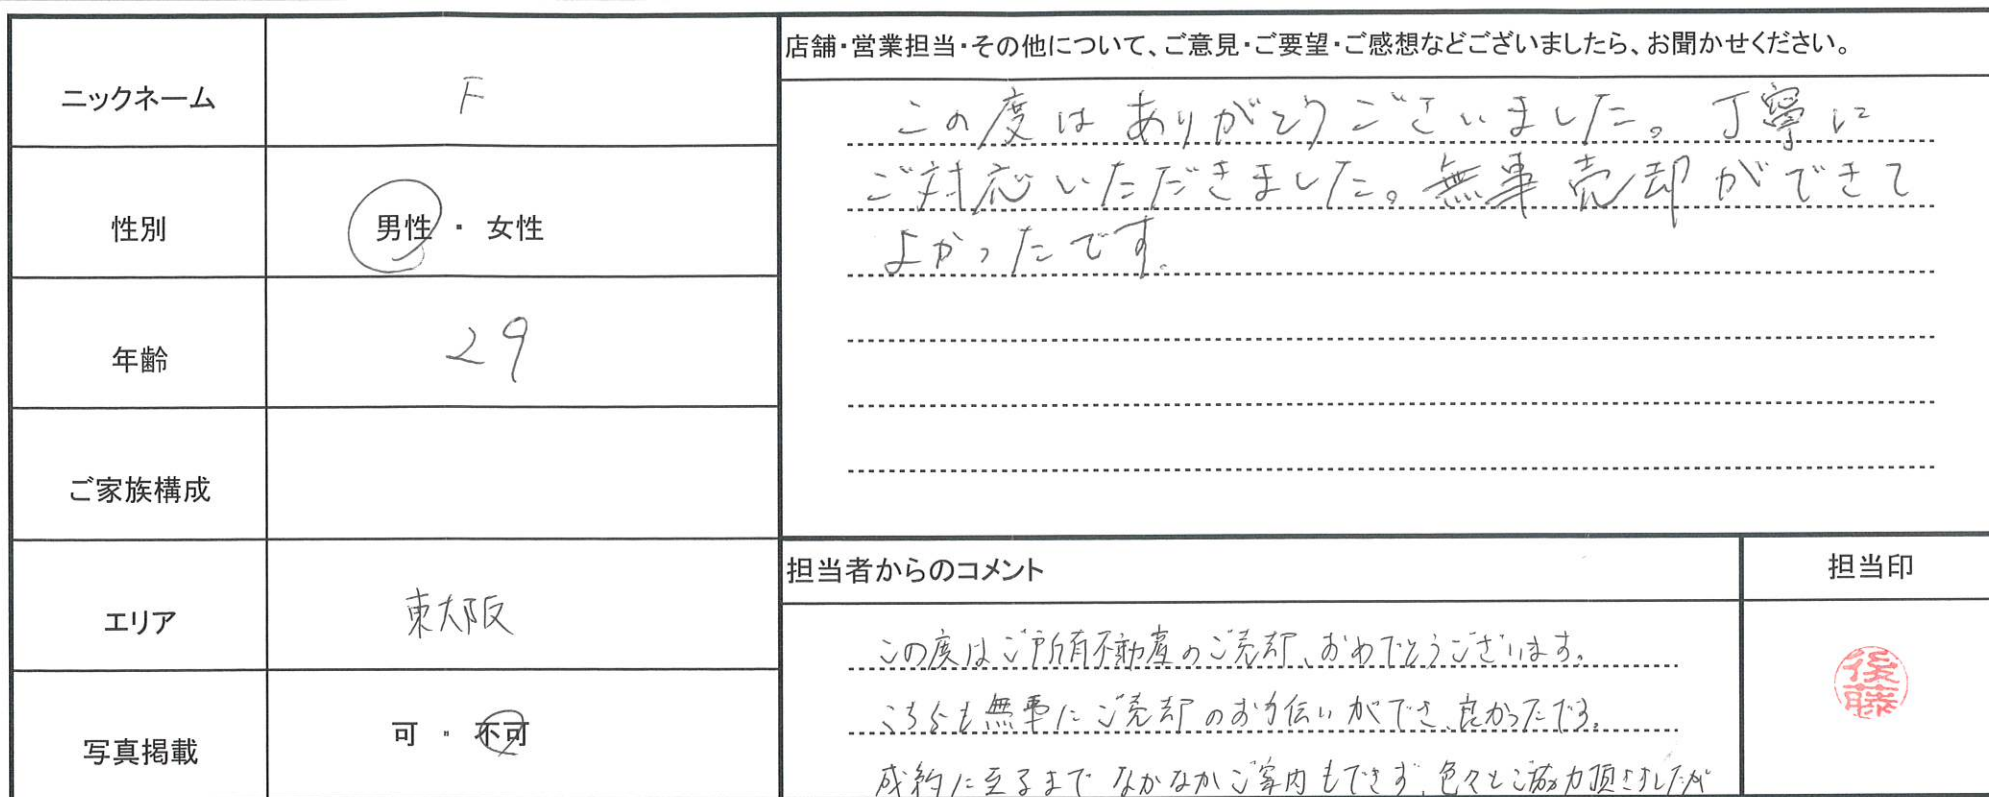 ニックネーム
F
性別
男性 ・ 女性
年齢
29
ご家族構成
エリア
東大阪
写真掲載
可 ・ 不可
店舗・営業担当・その他について、ご意見・ご要望・ご感想などございましたら、お聞かせください。
この度は ありがとうございました。丁寧に
ご対応いただきました。無事売却ができて
よかったです。
担当者からのコメント
この度はご所有不動産のご売却、おめでとうございます。
こちらも無事にご売却のお手伝いができ、良かったです。
成約に至るまで なかなかご案内もできず、色々とご協力頂きましたが
担当印
後藤